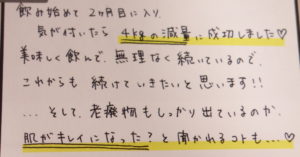 飲み始めて 2ヶ月目に入り、
気が付いたら 4kgの減量に成功しました♡
美味しく飲んで、無理なく続いているので、
これからも 続けていきたいと思います!!
... そして、老廃物もしっかり出ているのか、
肌がキレイになった？と聞かれるコトも...♡